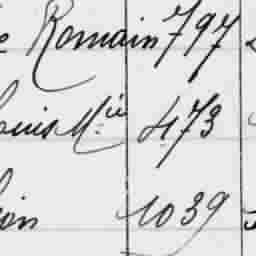 e Romain 797
ouis Mie 473
ion 1039